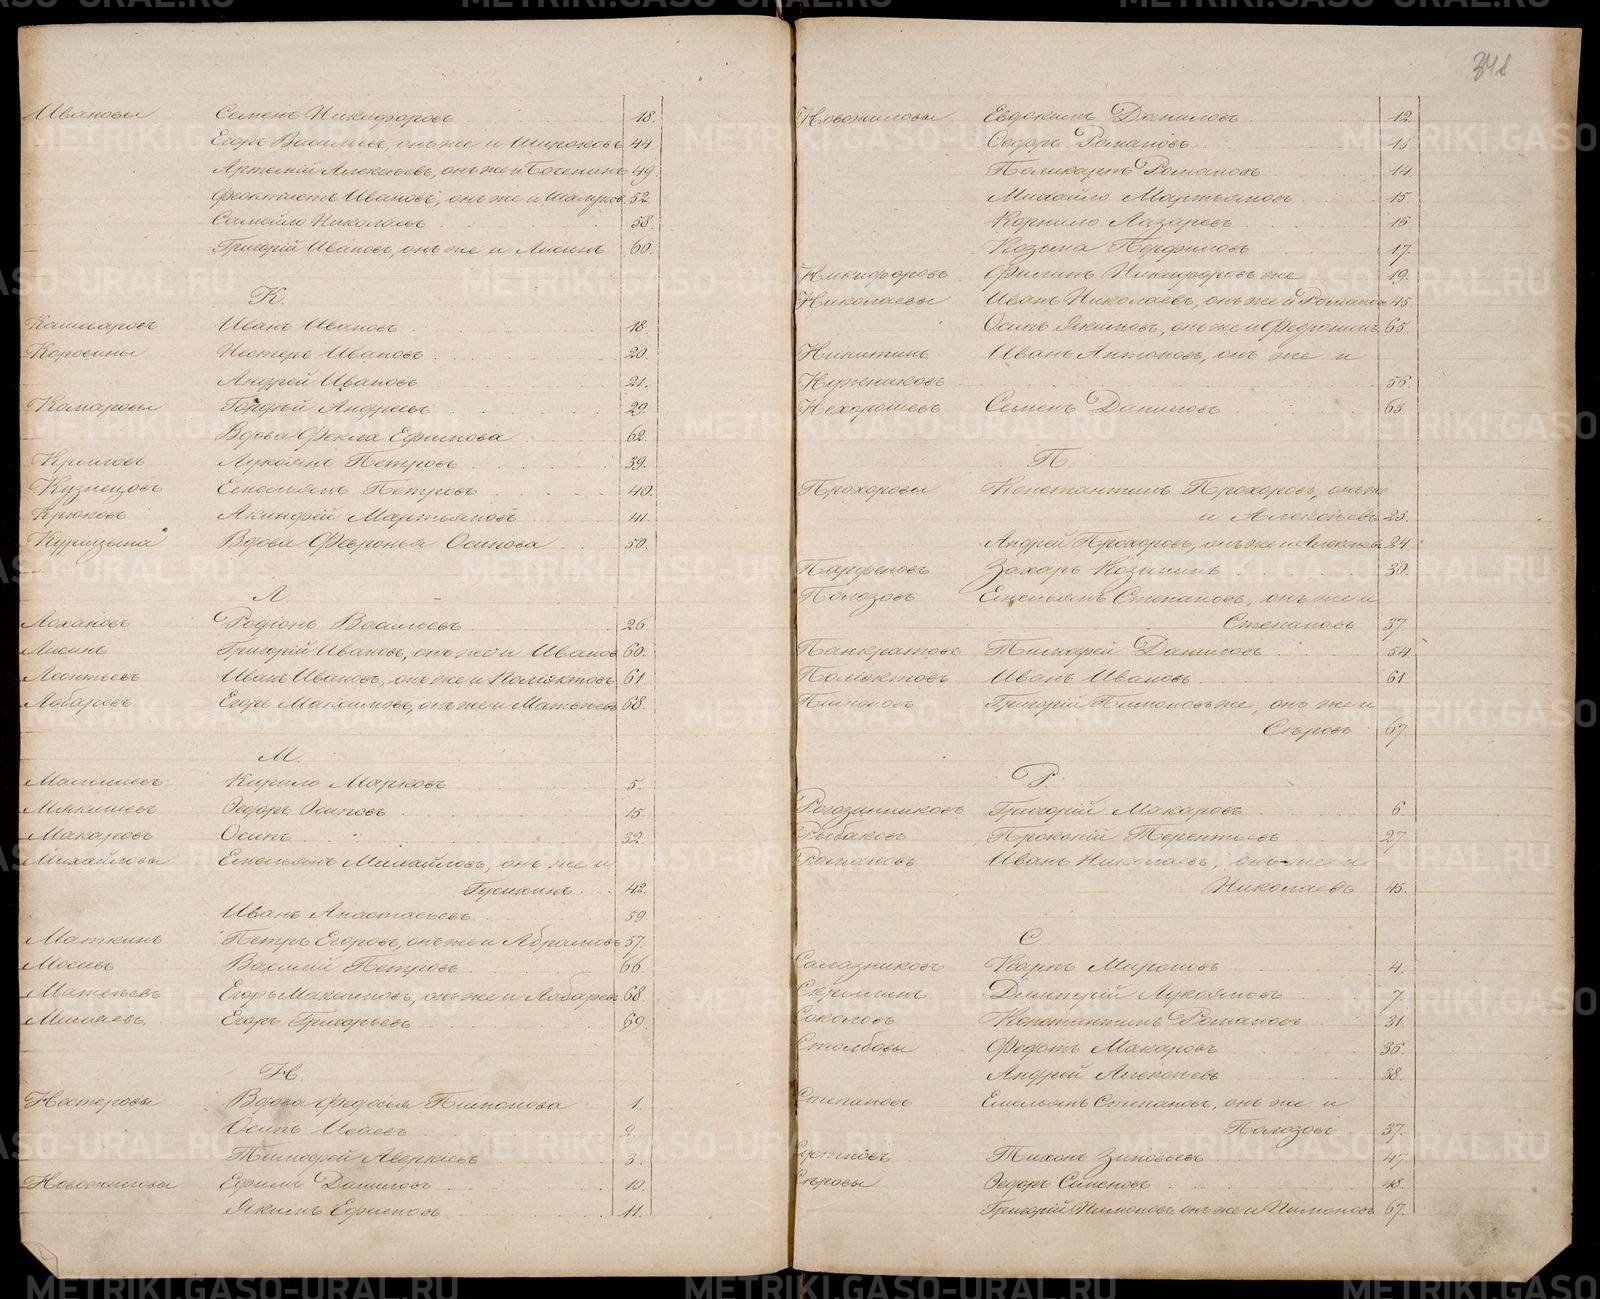 348
Ивановы Семенъ Никифоровъ 18.
Егоръ Васильевъ, онъ же и Широковъ 44.
Артемій Алексѣевъ, онъ же и 49.
Феоктистъ Ивановъ, онъ же и 52
Самойло Николаевъ 58.
Григорій Ивановъ, онъ же и Лисинъ 60.
К.
Кашкаровъ Иванъ Ивановъ 18.
Коровины Нестеръ Ивановъ 20.
Андрей Ивановъ 21.
Комаровы Гордѣй Андреевъ 29.
Вдова Фекла Ефимова 62.
Крыловъ Лукоянъ Петровъ 39.
Кузнецовъ Емельянъ Петровъ 40.
Крюковъ Акинфій Мартьяновъ 41.
Курицына Вдова Февронья Осипова 50.
Л
Лохановъ Родіонъ Васильевъ 26
Лисинъ Григорій Ивановъ, онъ же и Ивановъ 60.
Леонтьевъ Иванъ Ивановъ, онъ же и Поліэктовъ 61.
Лобаревъ Егоръ Максимовъ, онъ же и Матвѣевъ 68.
М.
Малышевъ Кирило Марковъ 5.
Мякишевъ Ѳедоръ Осиповъ 15.
Макаровъ Осипъ 32.
Михайловы Емельянъ Михайловъ, онъ же и
42.
Иванъ Анастасьевъ 59.
Маткинъ Петръ Егоровъ, онъ же и Абрамовъ 57.
Мосеевъ Василій Петровъ 66.
Матвѣевъ Егоръ Максимовъ, онъ же и Лобаревъ 68
Минѣевъ Егоръ Григорьевъ 69.
Н
Нестеровы Вдова Федосья Пимонова 1.
Осипъ 2.
Тимофей Аверкіевъ 3.
Новожиловы Ефимъ Даниловъ 10.
Якимъ Ефимовъ 11.
Новожиловы Евдокимъ Даниловъ 12.
Ѳедоръ Романовъ 13.
Поликарпъ Романовъ 14.
Михайло Мартьяновъ 15.
Корнило Лазаревъ 16
Козьма Перфиловъ 17.
Никифоровъ Филипъ Никифоровъ же 19.
Николаевы Иванъ Николаевъ, онъ же и Романовъ 45.
Осипъ Якимовъ, онъ же и 65.
Никитинъ Иванъ Антоновъ, онъ же и
56.
Нехорошевъ Семенъ Даниловъ 63.
П
Прохоровы Константинъ Прохоровъ, онъ же
и Алексѣевъ 23.
Андрей Прохоровъ, онъ же и Алексѣевъ 24
Парфеновъ Захаръ Козьминъ 30.
Полозовъ Емельянъ Степановъ, онъ же и
Степановъ 37.
Панкратовъ Тимофей Даниловъ 54
Поліэктовъ Иванъ Ивановъ 61.
Пимоновъ Григорій Пимоновъ же, онъ же и
Сѣровъ 67.
Р.
Рогозинниковъ Григорій Макаровъ 6.
Рыбаковъ Прокопій Терентьевъ 27.
Романовъ Иванъ Николаевъ, онъ же и
Николаевъ 45.
С
Салазниковъ Карпъ Мироновъ 4.
Скрипинъ Дмитрій Лукояновъ 7.
Соколовъ Константинъ Романовъ 31.
Столбовы Федотъ Макаровъ 36.
Андрей Алексѣевъ 38.
Степановъ Емельянъ Степановъ, онъ же и
Полозовъ 37.
Тихонъ Зиновьевъ 47.
Сѣровы Ѳедоръ Семеновъ 48.
Григорій Пимоновъ, онъ же и Пимоновъ 67.
METRIKI.GASO-URAL.RU